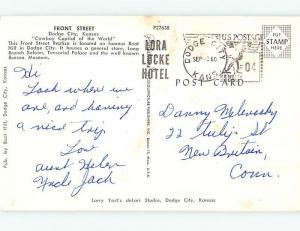 FRONT STREET
Dodge City, Kansas
"Cowboy Capitol of the World"
This Front Street Replica is located on famous Boot
Hill in Dodge City. It houses a general store, Long
Branch Saloon, Tonsorial Palace and the well known
Beeson Museum.
P27638
LORA
LOCKE
HOTEL
DODGE CITY
SEP
KANS.
U.S. POSTAGE
PUT
STAMP
HERE
POST CARD
Hi
Look where we
are, and having
a nice trip.
Love
Aunt Helen
Uncle Jack
Danny
22 Tulip St
New Britain,
Conn.
Pub. by Boot Hill, Dodge City, Kansas
Larry Yost's deLari Studio, Dodge City, Kansas